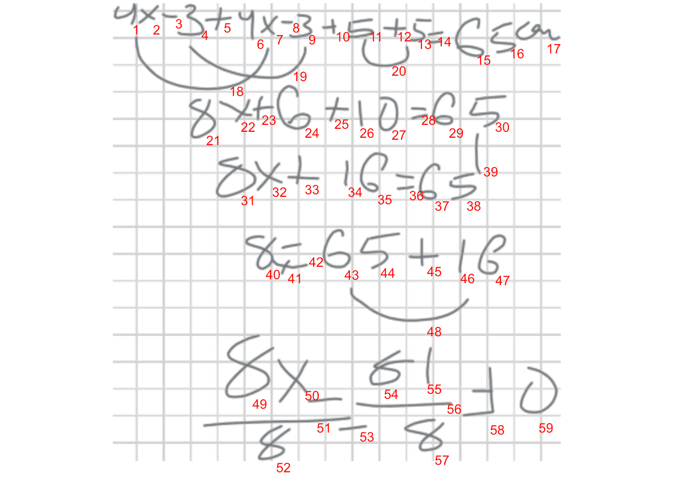 4x-3+4x-3+5+5=65cm
1 2 3 4 5 6 7 8 9 10 11 12 13 14 15 16 17
18 19 20
8x+6+10=65
21 22 23 24 25 26 27 28 29 30
8x+16=65
31 32 33 34 35 36 37 38 39
8x=65+16
40 41 42 43 44 45 46 47
48
8x 81 =10
49 50 54 55 56 58 59
8 = 8
51 52 53 57